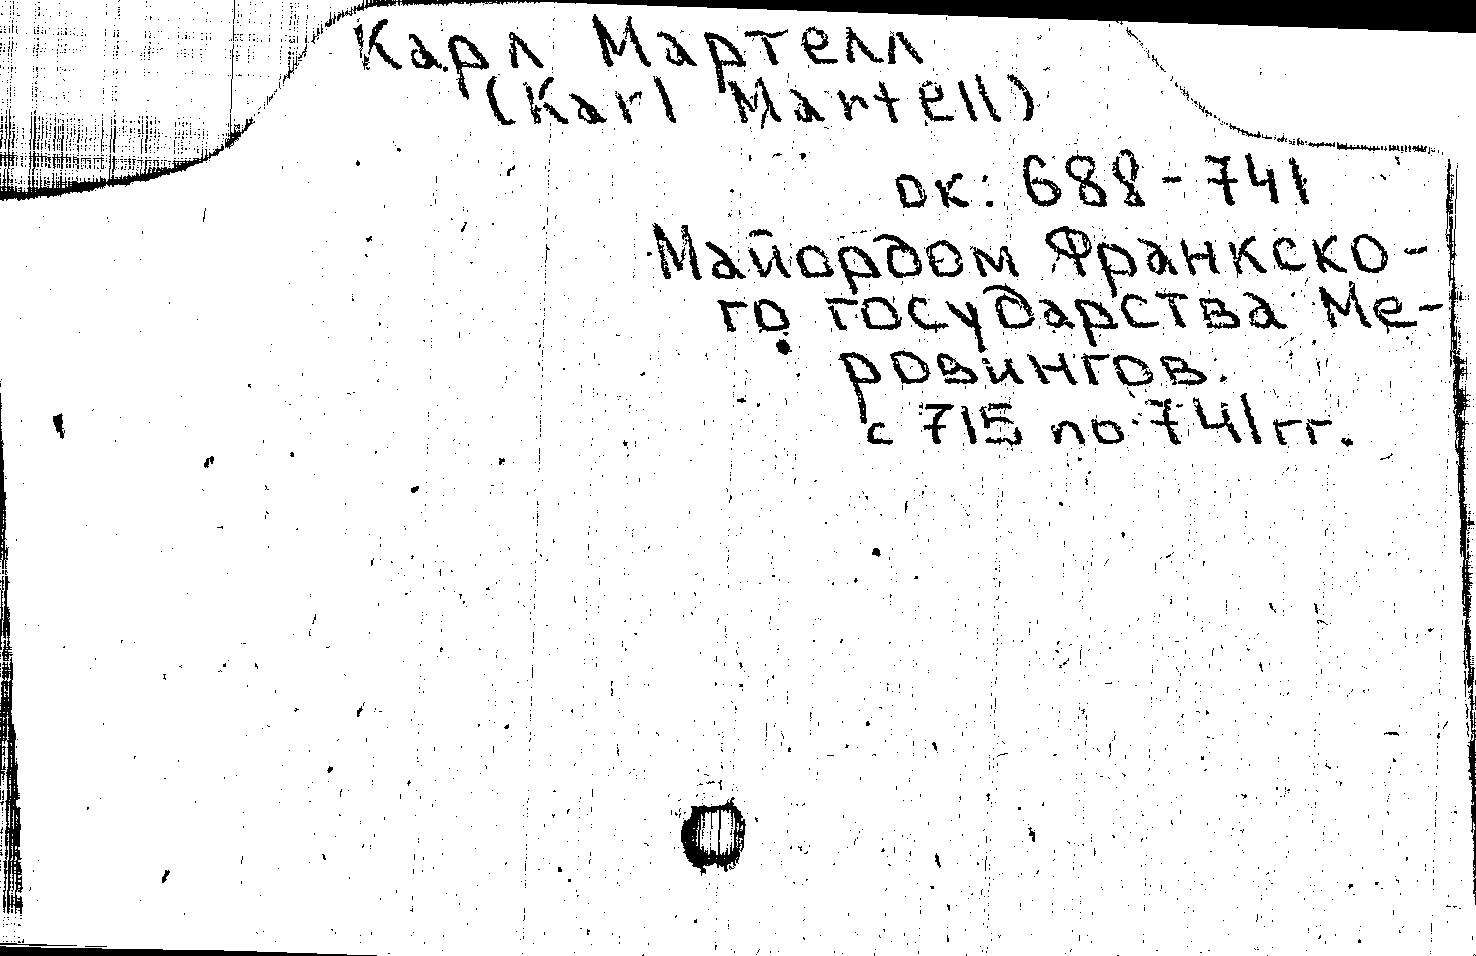 Карл Мартелл
(Karl Martell)
ок. 688-741
Майордом Франкско-
го государства Ме-
ровингов.
с 715 по 741 гг.